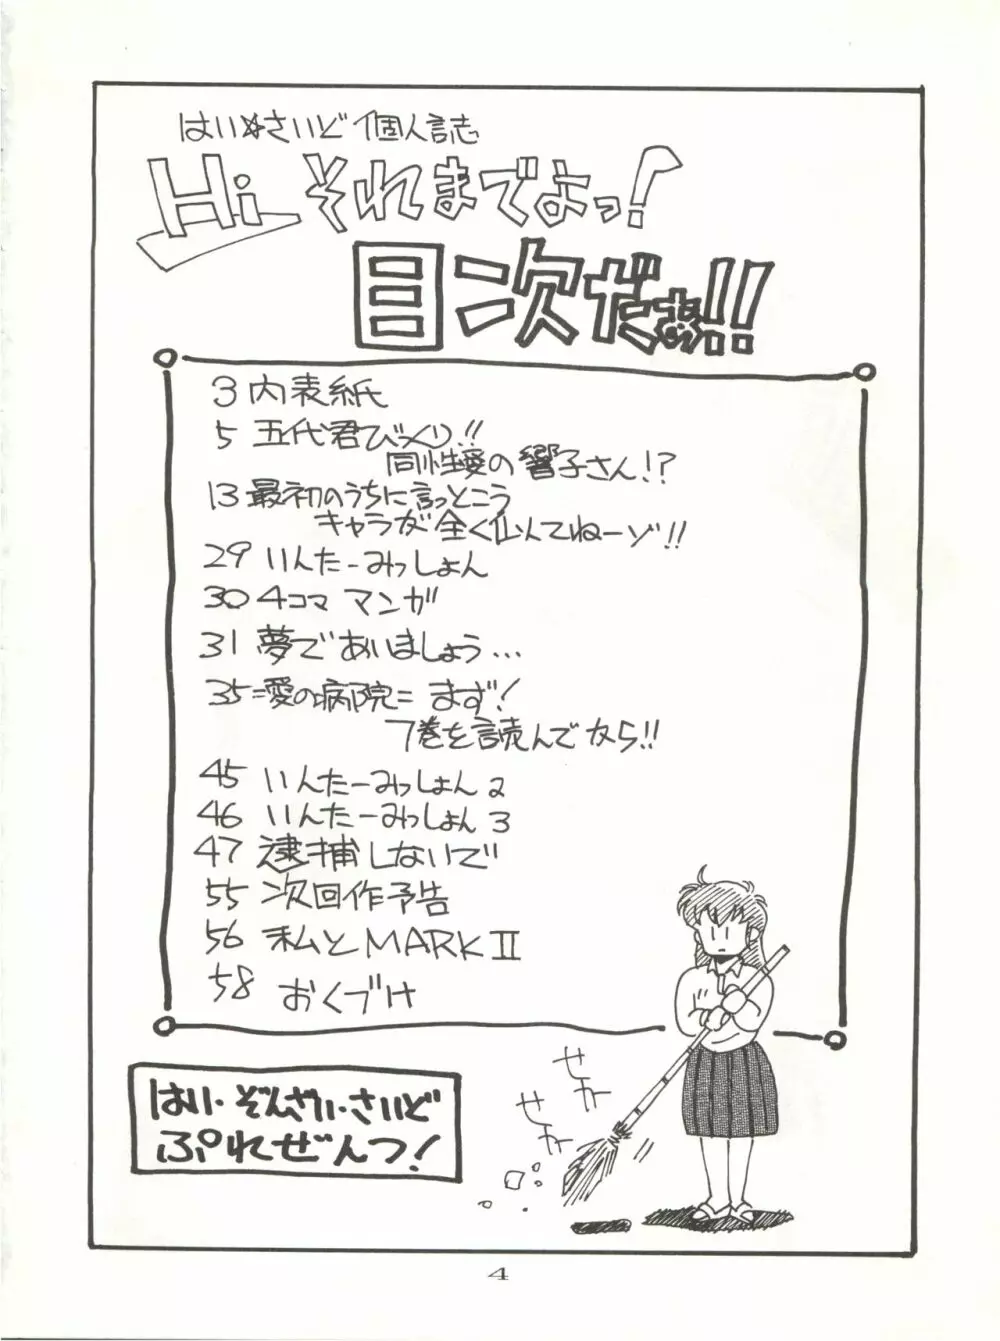 はい☆さいど 個人誌
Hi それまでよっ!
目次だぁ!!
3 内表紙
5 五代君びっくり!!
同性愛の響子さん!?
13 最初のうちに言っとこう
キャラが全く似てねーゾ!!
29 いんたーみっしょん
30 4コママンガ
31 夢であいましょう...
35 =愛の病院= まず!
7巻を読んでから!!
45 いんたーみっしょん2
46 いんたーみっしょん3
47 逮捕しないで
55 次回作予告
56 私とMARK II
58 おくづけ
せか
せか
はい・ぞんざい・さいど
ぷれぜんつ!
4